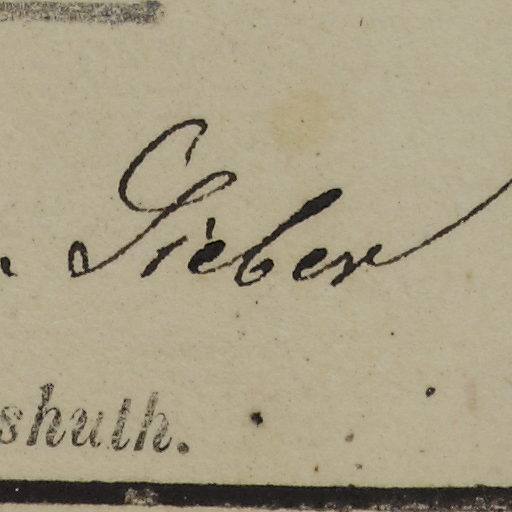 . Sieber
shuth.